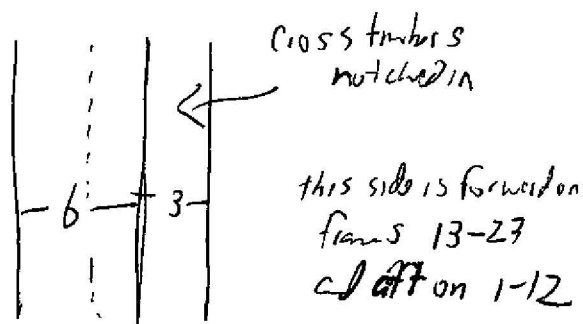 cross timbers
notched in
6 3
this side is forward on
frames 13-23
and aft on 1-12